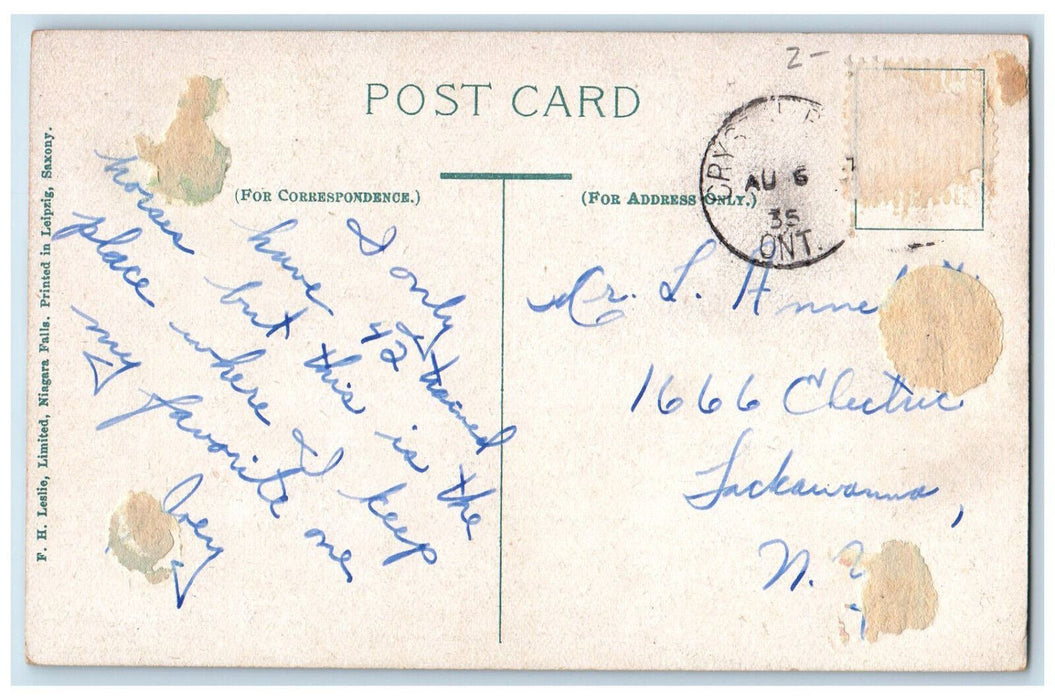 2-
POST CARD
CRYS
AU 6
35
ONT.
(FOR CORRESPONDENCE.)
(FOR ADDRESS ONLY.)
F. H. Leslie, Limited, Niagara Falls. Printed in Leipzig, Saxony.
I only
have 42 trained
horses but this is the
place where I keep
my favorite one
Joey
Mr. L. Anne
1666 Electric
Lackawanna,
N. Y